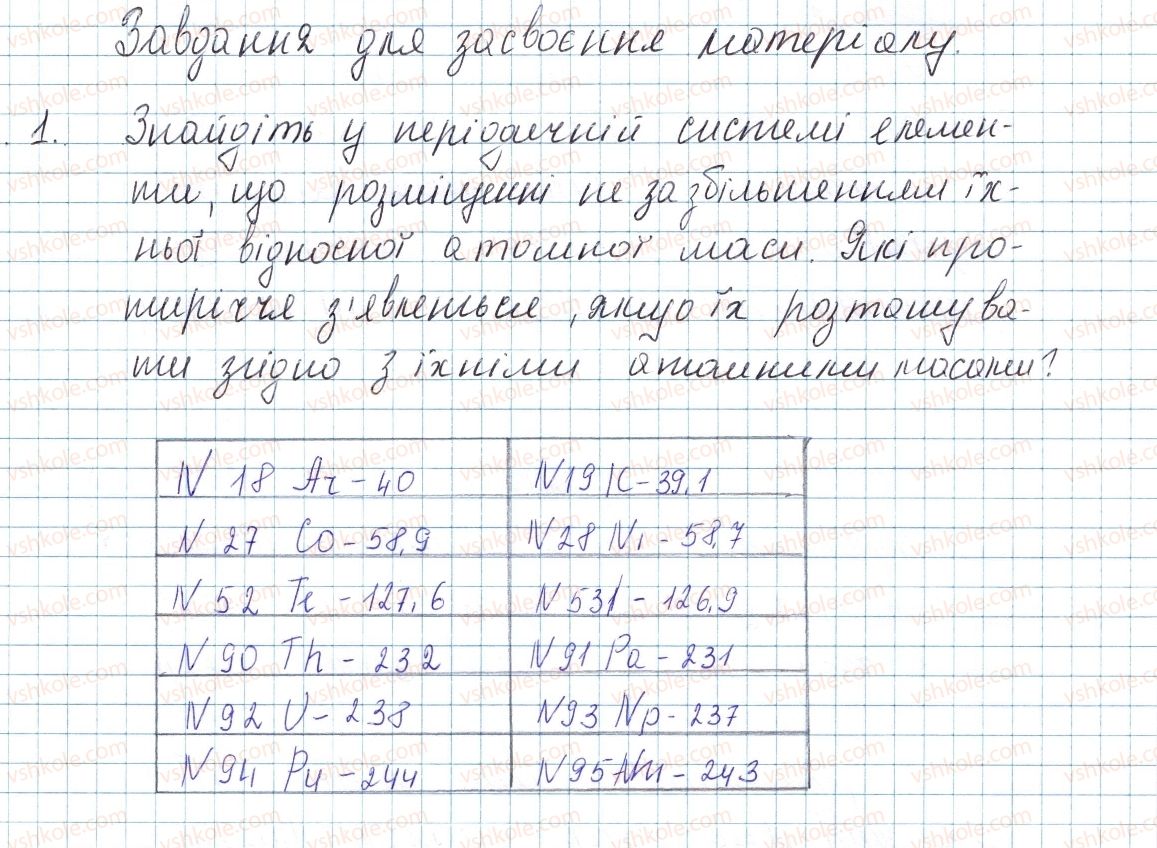 Завдання для засвоєння матеріалу.
1. Знайдіть у періодичній системі елемен-
ти, що розміщенні не за збільшенням їх-
ньої відносної атомної маси. Які про-
тиріччя з'являться, якщо їх розташува-
ти згідно з їхніми атомними масами?
N 18 Ar - 40 N 19 K - 39,1
N 27 Co - 58,9 N 28 Ni - 58,7
N 52 Te - 127,6 N 53 I - 126,9
N 90 Th - 232 N 91 Pa - 231
N 92 U - 238 N 93 Np - 237
N 94 Pu - 244 N 95 Am - 243